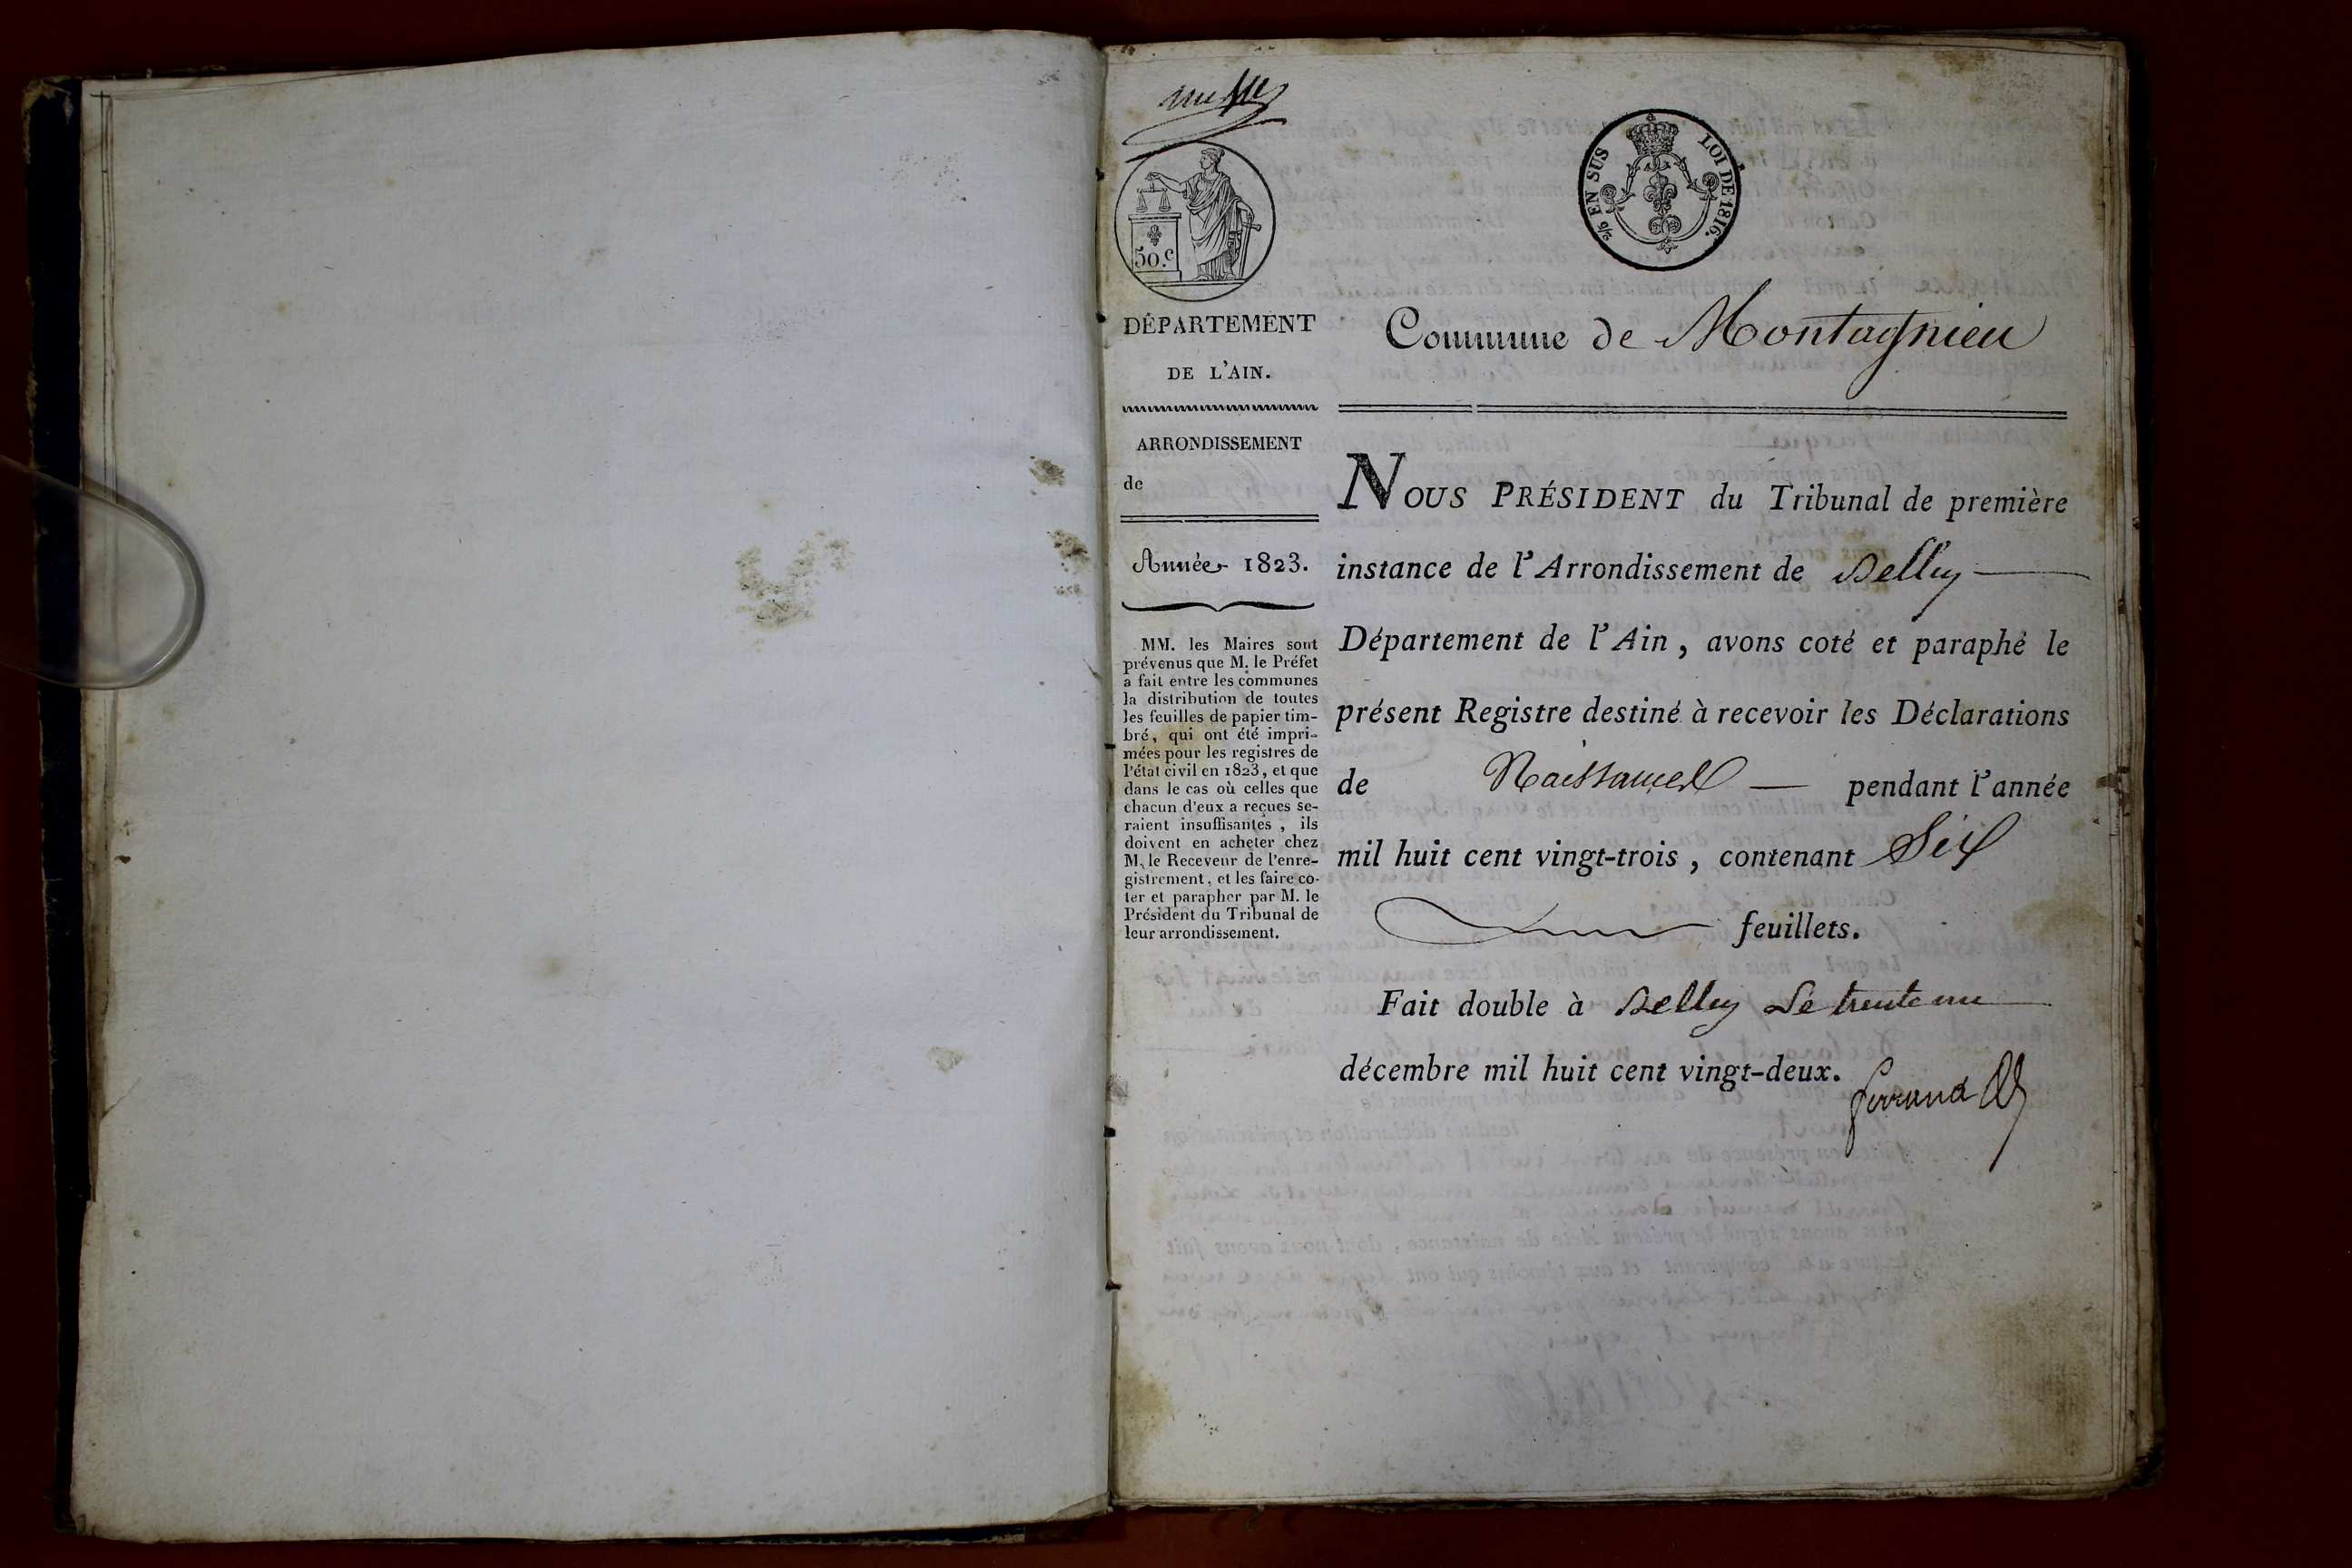 50.c
2/5 EN SUS
LOI DE 1816.
DÉPARTEMENT
DE L'AIN.
ARRONDISSEMENT
de
Année 1823.
MM. les Maires sont
prévenus que M. le Préfet
a fait entre les communes
la distribution de toutes
les feuilles de papier tim-
bré, qui ont été impri-
mées pour les registres de
l'état civil en 1823, et que
dans le cas où celles que
chacun d'eux a reçues se-
raient insuffisantes, ils
doivent en acheter chez
M. le Receveur de l'enre-
gistrement, et les faire co-
ter et parapher par M. le
Président du Tribunal de
leur arrondissement.
Commune de Montagnieu
NOUS PRÉSIDENT du Tribunal de première
instance de l'Arrondissement de Belley
Département de l'Ain, avons coté et paraphé le
présent Registre destiné à recevoir les Déclarations
de Naissances pendant l'année
mil huit cent vingt-trois, contenant Six
feuillets.
Fait double à Belley Le trente un
décembre mil huit cent vingt-deux.